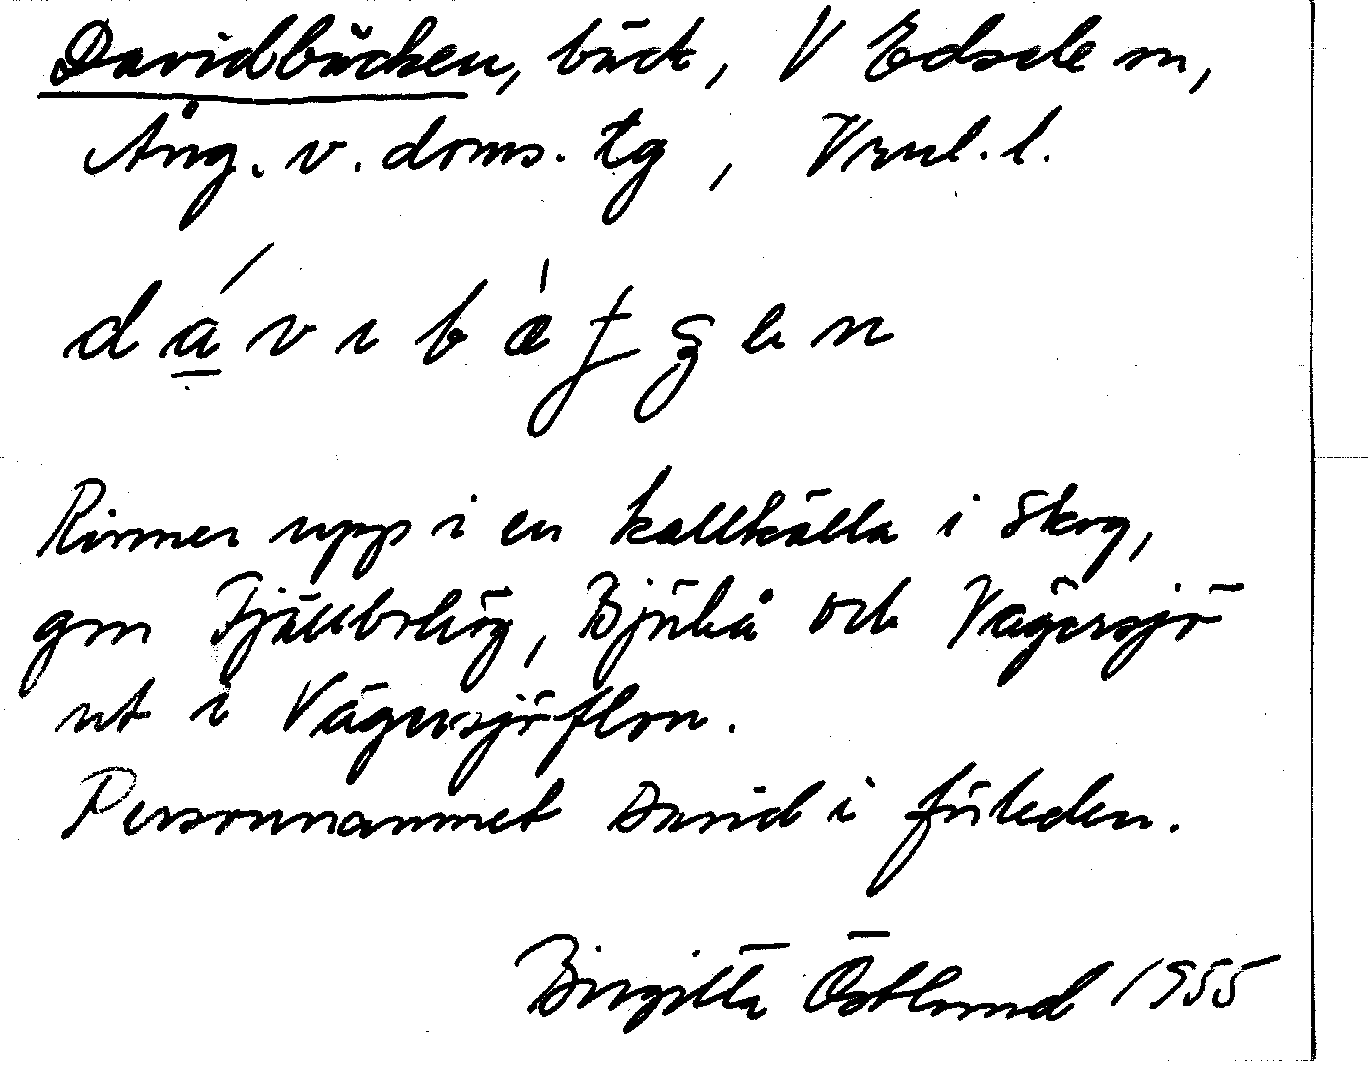 Davidbäcken, bäck, V Edsele sn,
Ång. v. doms. tg, Vrnl. l.
Rinner upp i en kallkälla i skog,
gm Fjällbohög, Björkå och Vägersjö
ut i Vägersjöflon.
Personnamnet David i förleden.
Birgitta Östlund 1955